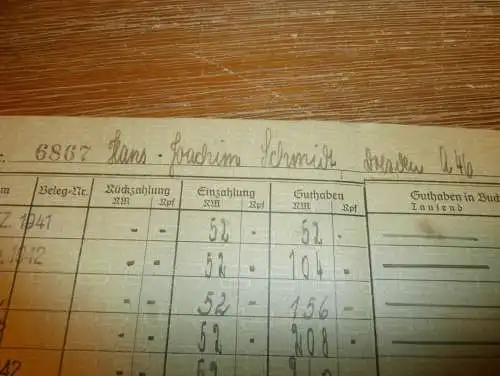 6867 Hans-Joachim Schmidt, Dresden A 46
Beleg-Nr. Rückzahlung Einzahlung Guthaben Guthaben in Buch
RM Rpf RM Rpf RM Rpf Tausend
Z. 1941 - - 52 - 52 -
1942 - - 52 - 104 -
- - 52 - 156 -
- - 52 - 208 -
42 52